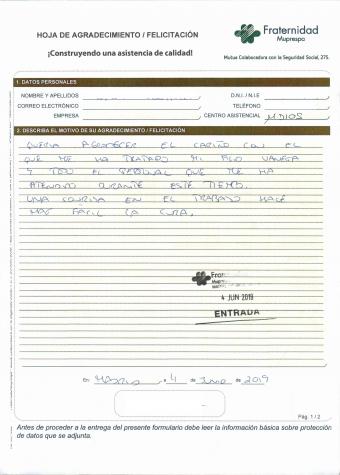 HOJA DE AGRADECIMIENTO / FELICITACIÓN
¡Construyendo una asistencia de calidad!
Fraternidad
Muprespa
Mutua Colaboradora con la Seguridad Social, 275.
1. DATOS PERSONALES
NOMBRE Y APELLIDOS
D.N.I./N.I.E
CORREO ELECTRÓNICO
TELÉFONO
EMPRESA
CENTRO ASISTENCIAL
2. DESCRIBA EL MOTIVO DE SU AGRADECIMIENTO / FELICITACIÓN
QUERIA AGRADECER EL CARIÑO CON EL
QUE ME HA TRATADO MI VANESA
Y TODO EL PERSONAL QUE ME HA
ATENDIDO DURANTE ESTE TIEMPO.
UNA SONRISA EN EL TRABAJO HACE
MAS FACIL LA CURA.
Frat
Mup
4 JUN 2019
ENTRADA
En MADRID, a 4 de JUNIO de 2019
Pág. 1 / 2
Antes de proceder a la entrega del presente formulario debe leer la información básica sobre protección
de datos que se adjunta.